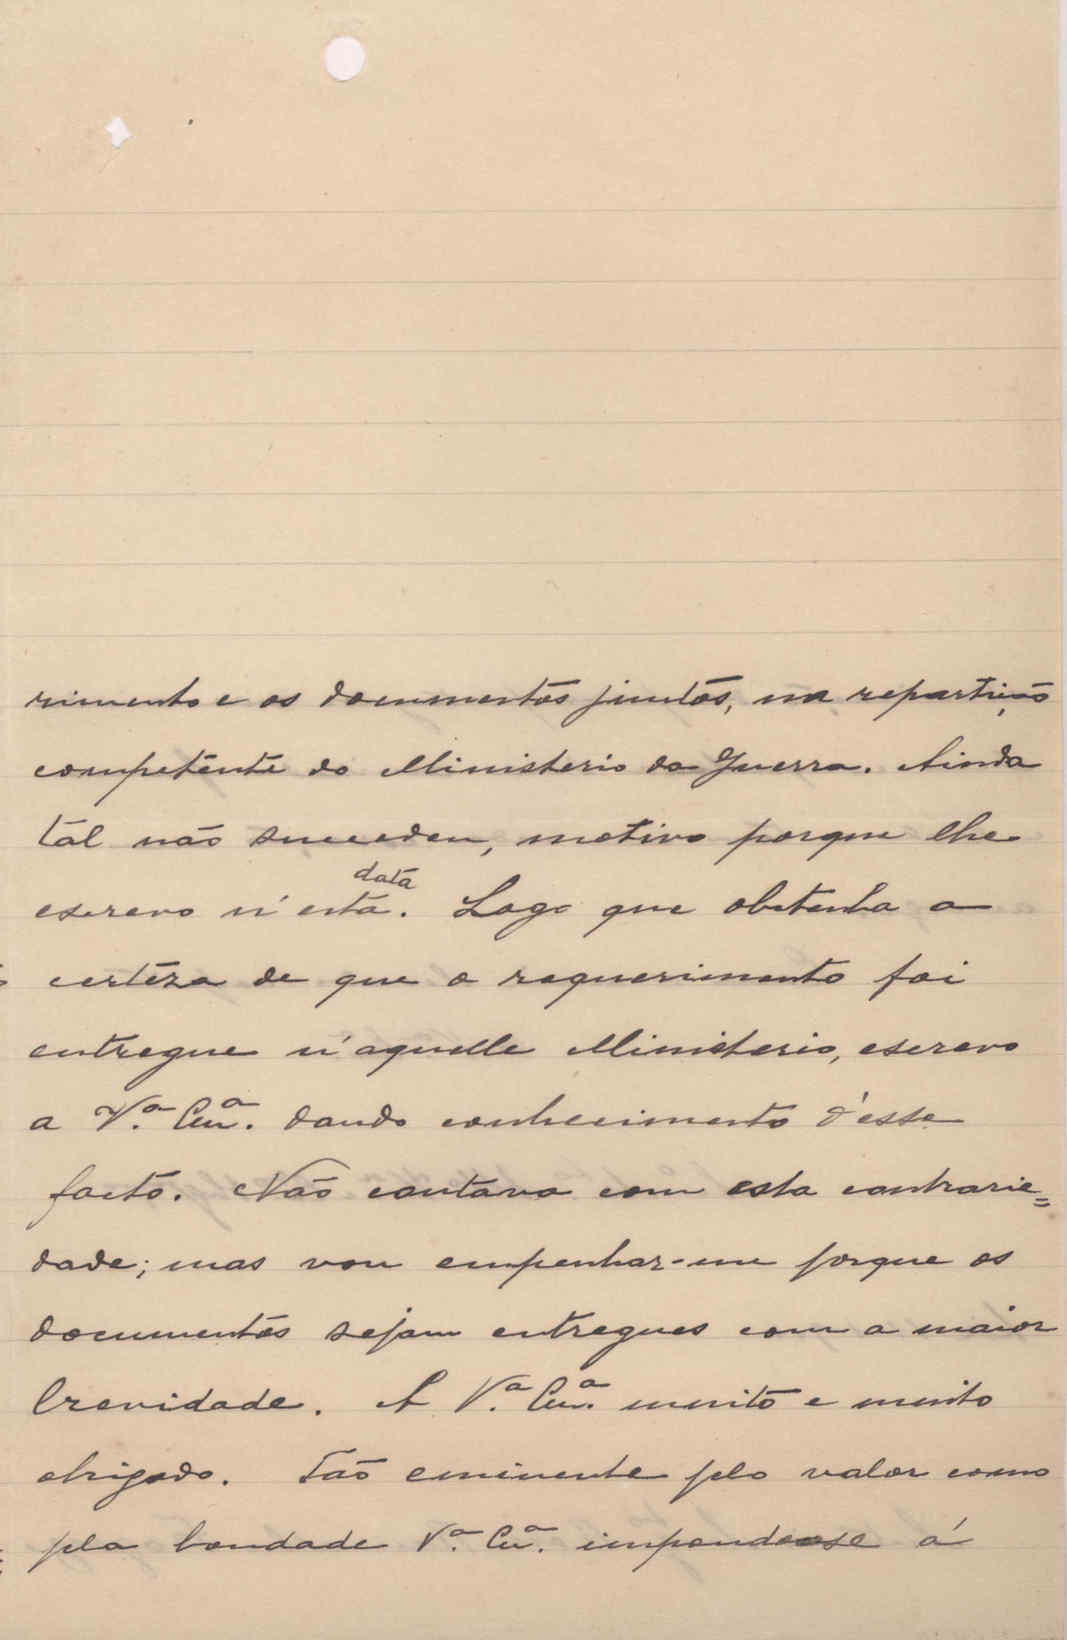 rimento e os documentos juntos, na repartição
competente do Ministerio da Guerra. Ainda
tál não succedeu, motivo porque lhe
escrevo n'esta data. Logo que obtenha a
certêza de que o requerimento foi
entregue n'aquelle Ministerio, escrevo
a V.ª Ex.ª dando conhecimento d'esse
facto. Não contava com esta contrarie=
dade; mas vou empenhar-me porque os
documentos sejam entregues com a maior
brevidade. A V.ª Ex.ª muito e muito
obrigado. Tão eminente pelo valor como
pela bondade V.ª Ex.ª impondo-se á